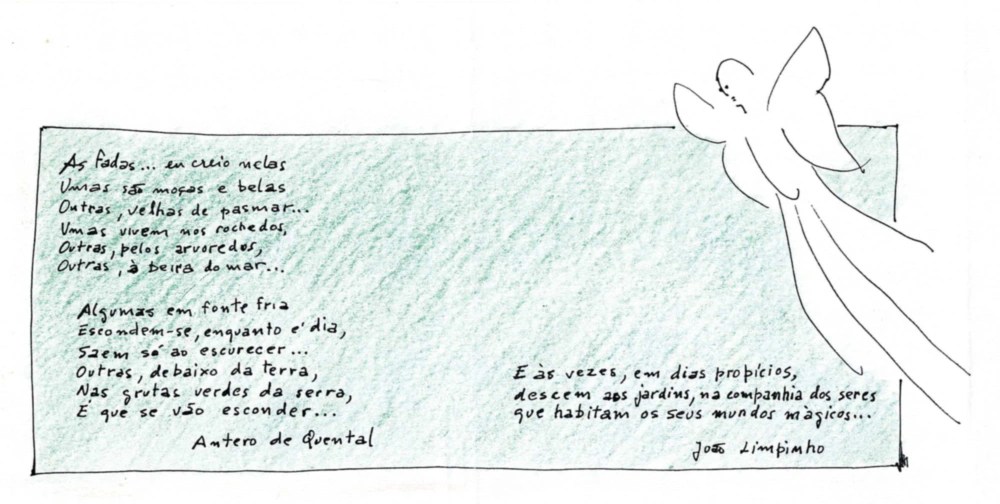 As fadas... eu creio nelas
Umas são moças e belas
Outras, velhas de pasmar...
Umas vivem nos rochedos,
Outras, pelos arvoredos,
Outras, à beira do mar...
Algumas em fonte fria
Escondem-se, enquanto é dia,
Saem só ao escurecer...
Outras, debaixo da terra,
Nas grutas verdes da serra,
É que se vão esconder...
Antero de Quental
E às vezes, em dias propícios,
descem aos jardins, na companhia dos seres
que habitam os seus mundos mágicos...
João Limpinho